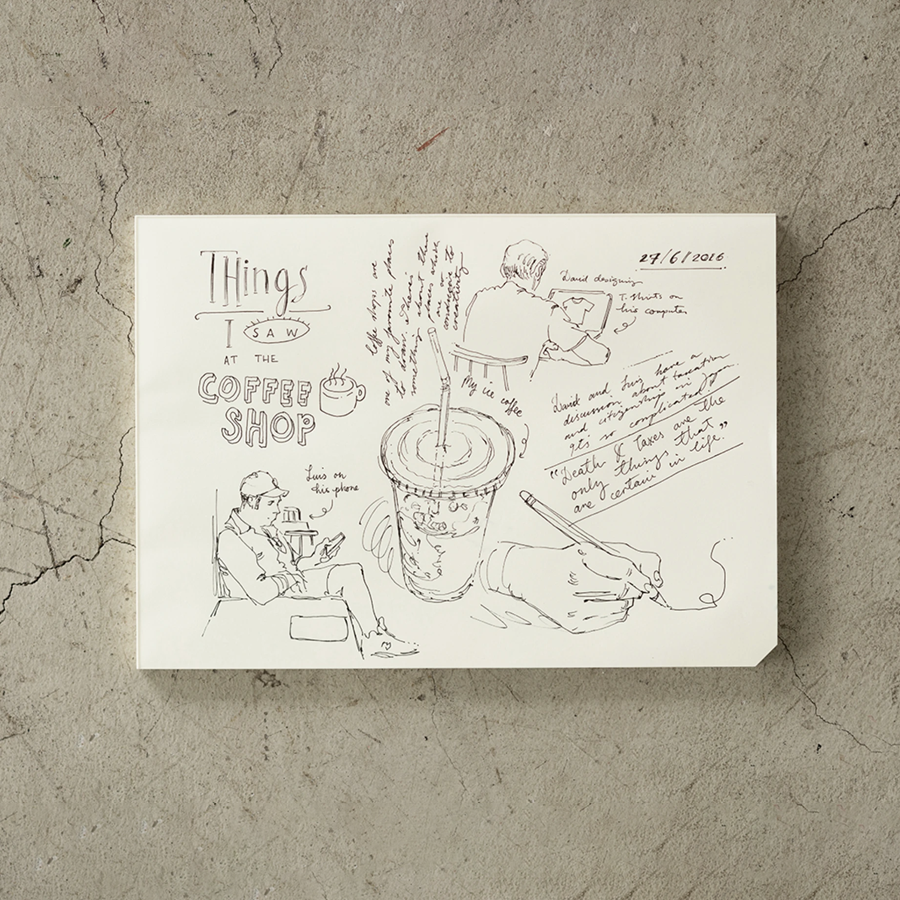 THings
I SAW
AT THE
COFFEE
SHOP
Coffee shops are
one of my favorite places
to draw. There's
something about
places
are so
conducive to
creativity
27/6/2016
David designing
T-shirts on
his computer
My ice coffee
David and Luis have a
discussion about taxation
and citizenship in Japan.
It's so complicated!
"Death & Taxes are the
only things that
are certain in life."
Luis on
his phone